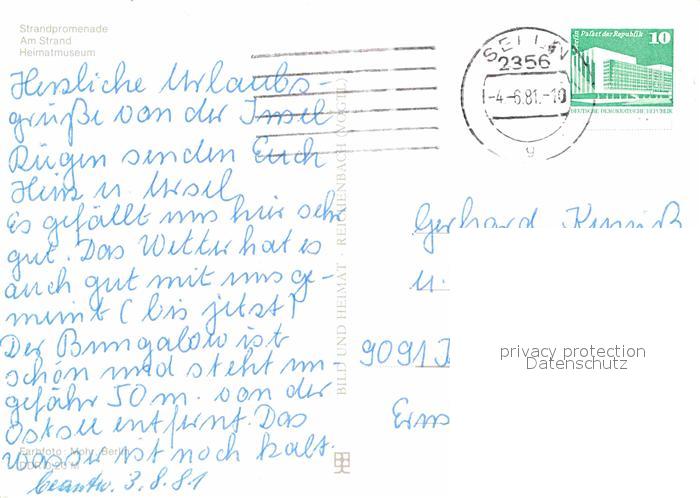 Strandpromenade
Am Strand
Heimatmuseum
Herzliche Urlaubs-
grüße von der Insel
Rügen senden Euch
Heinz u. Ursel.
Es gefällt uns hier sehr
gut. Das Wetter hat es
auch gut mit uns ge-
meint (bis jetzt)
Der Bungalow ist
schön und steht un-
gefähr 50 m. von der
Ostsee entfernt. Das
Wasser ist noch kalt.
Farbfoto: Mohr, Berlin
beantw. 3.8.81
BILD UND HEIMAT · REICHENBACH (VOGTL)
SELLIN
2356
-4.-6.81.-10
g
Berlin Palast der Republik
10
DEUTSCHE DEMOKRATISCHE REPUBLIK
Gerhard
u.
9091
privacy protection
Datenschutz